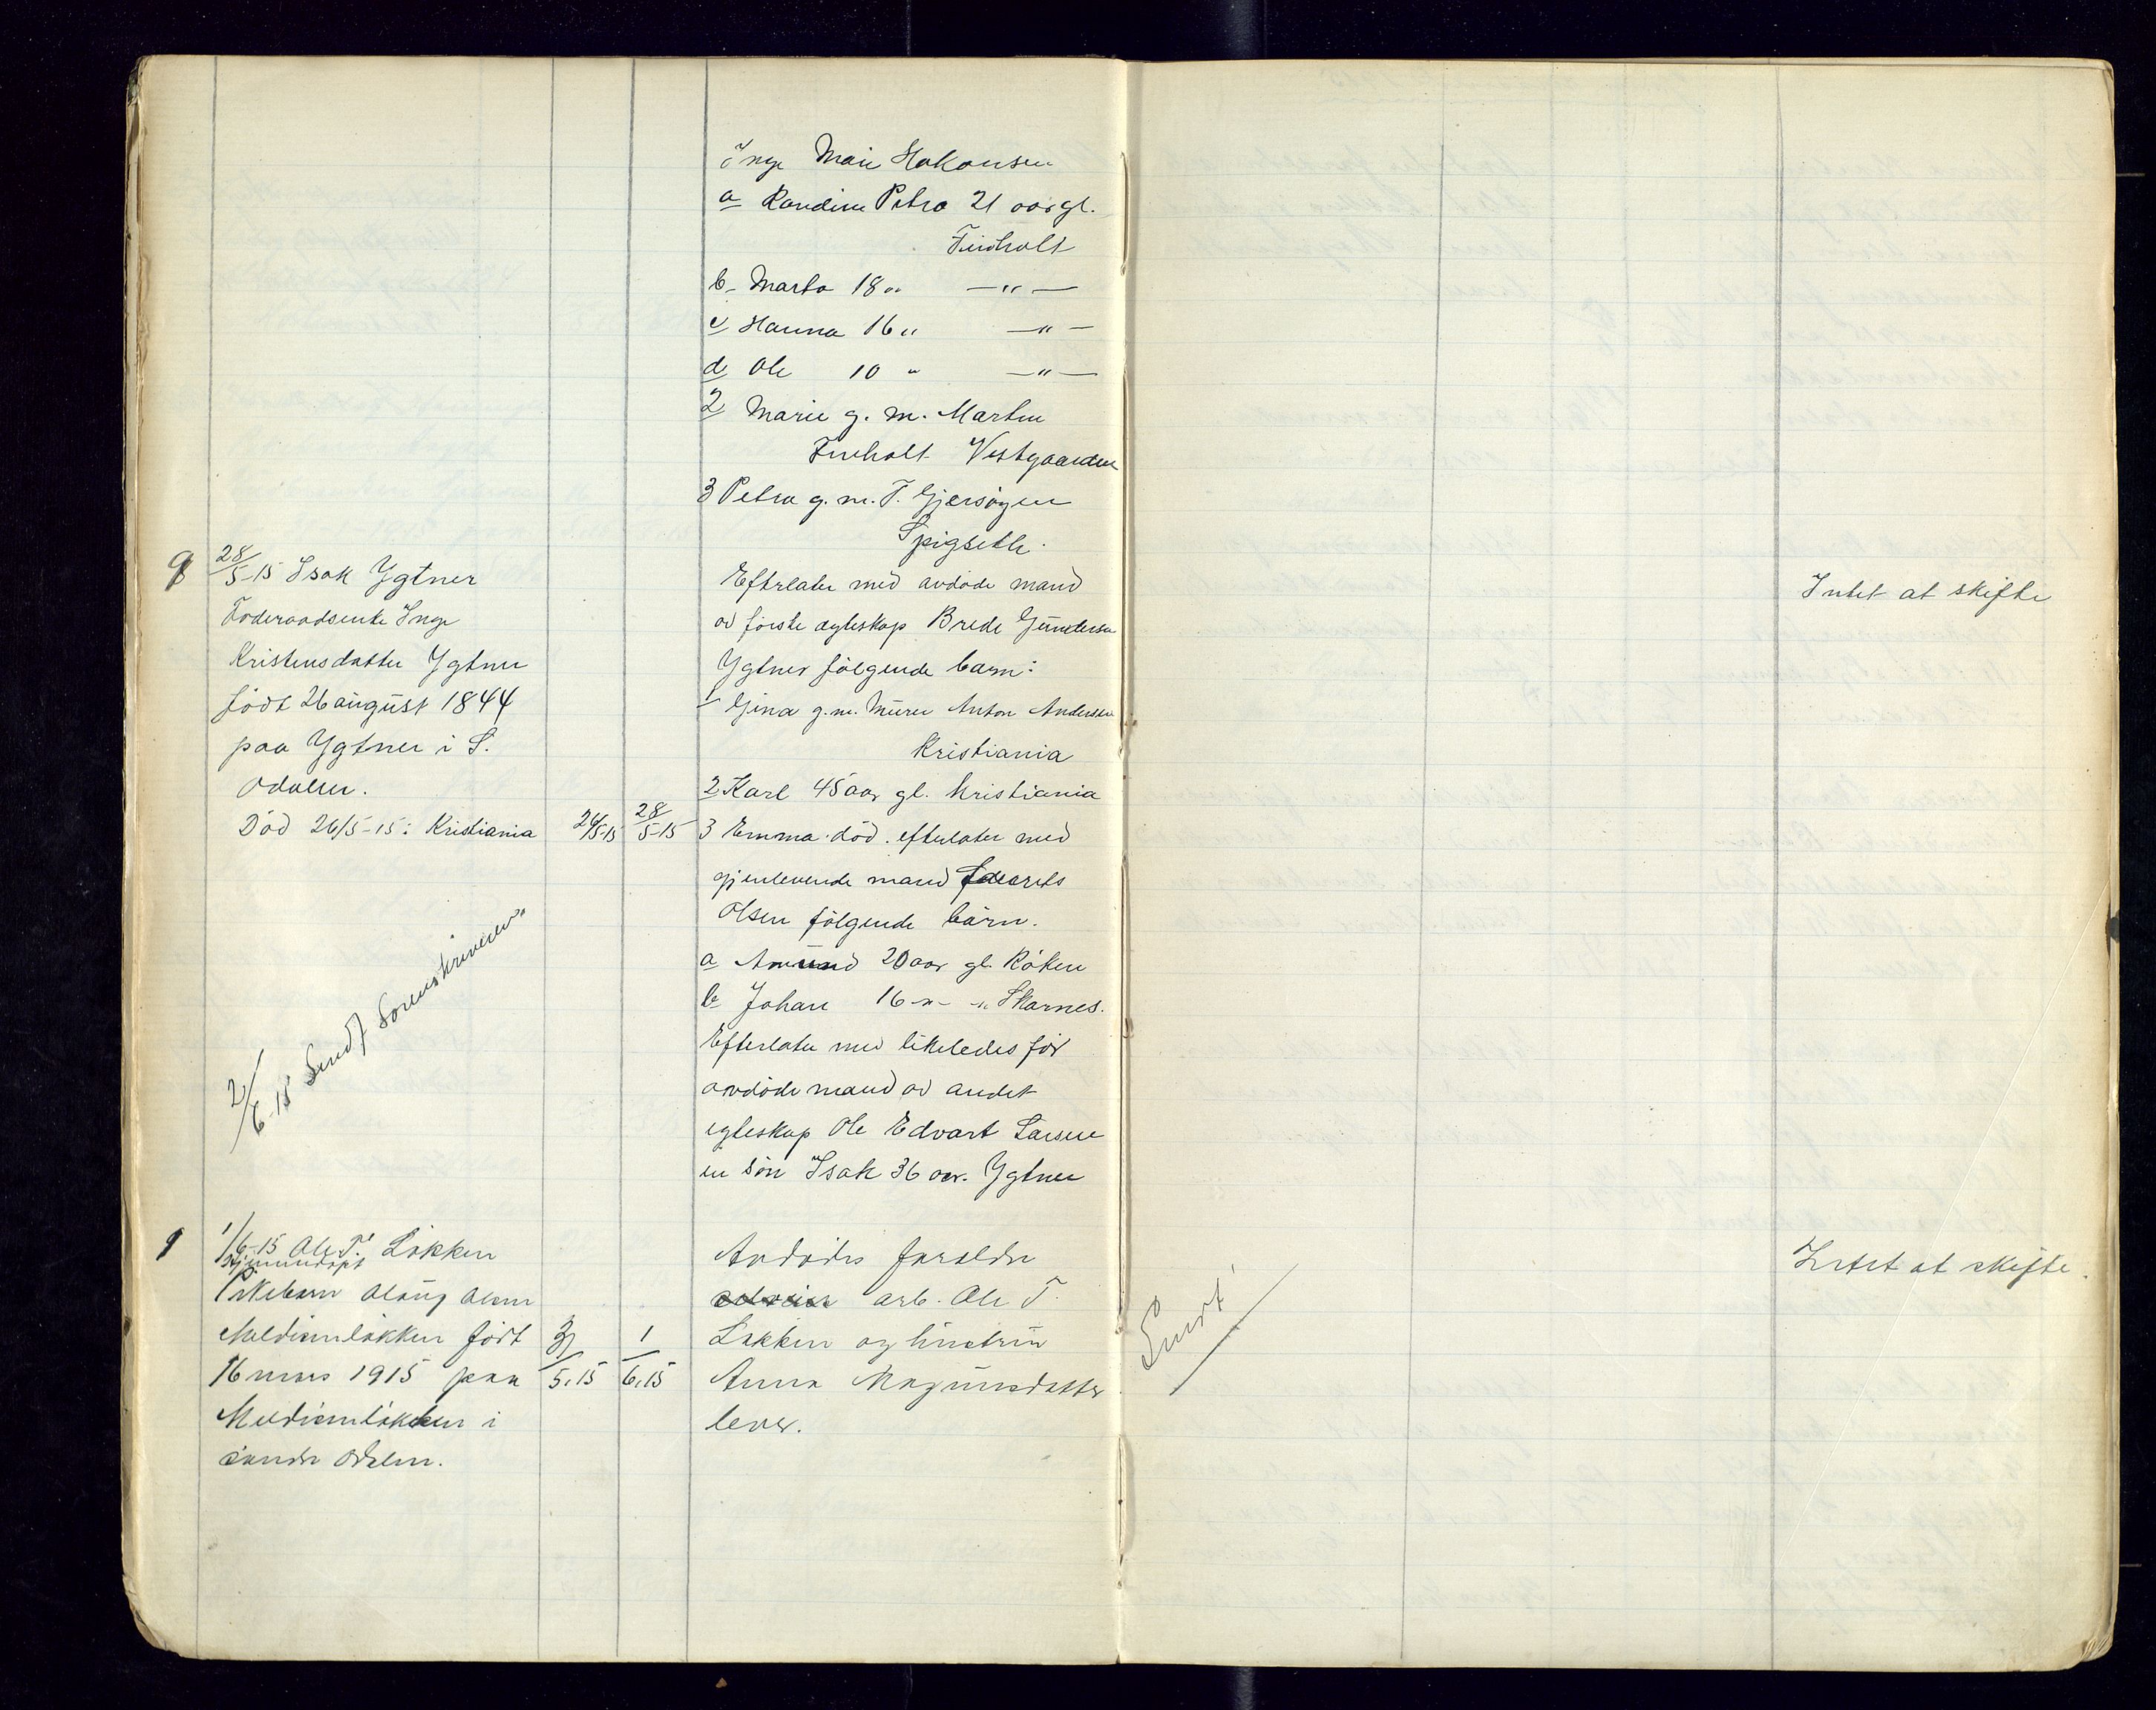 Inge Marie Hakonsen
a Randine Petra 21 aar gl.
Finholt
b - Marta 18 " — " —
c Hanna 16 " — " —
d Ole 10 " — " —
2 Marie g. m. Martin
Finholt Vestgaarden
3 Petra g. m. T. Gjersøyen
Spigseth.
9
28/5-15 Isak Ygtner
Foderaadsenke Inge
Kristensdatter Ygtner
født 26 august 1844
paa Ygtner i S.
Odalen.
Død 26/5-15 i Kristiania
26/5-15
28/5-15
2/6-15 Sendt Sorenskriveren
Efterlater med avdøde mand
av første egteskap Brede Gundersen
Ygtner følgende barn:
1 Gina g. m. Murer Anton Andersen
Kristiania
2 Karl 45 aar gl. Kristiania
3 Emma død. efterlater med
gjenlevende mand
Olsen følgende børn.
a Amund 20 aar gl. Røken
b Johan 16 -"- -"- Skarnes.
Efterlater med likeledes før
avdøde mand av andet
egteskap Ole Edvart Larsen
en søn Isak 36 aar. Ygtner
Intet at skifte
1
1/6-15 Ole T. Løkken
Pikebarn Olaug Olsen
Meldiemløkken født
16 mars 1915 paa
Meldiemløkken i
søndre Odalen.
31/5.15
1/6.15
Avdødes forældre
arb. Ole T.
Løkken og hustru
Anna Magnusdatter
lever.
Sendt
Intet at skifte.